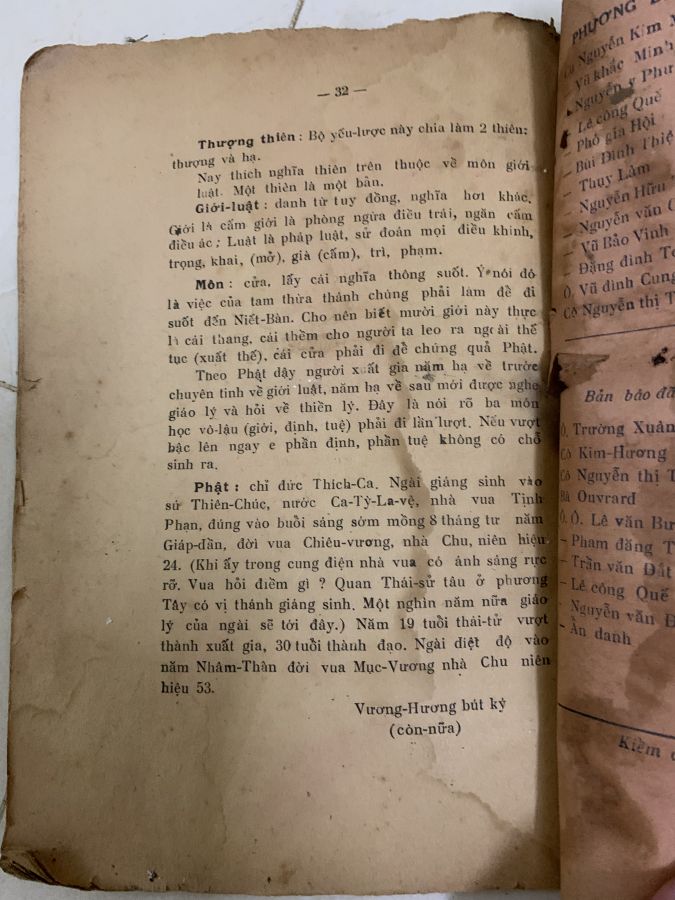 — 32 —
Thượng thiên : Bộ yếu-lược này chia làm 2 thiên:
thượng và hạ.
Nay thích nghĩa thiên trên thuộc về môn giới
luật. Một thiên là một bản.
Giới-luật : danh từ tuy đồng, nghĩa hơi khác.
Giới là cấm giới là phòng ngừa điều trái, ngăn cấm
điều ác ; Luật là pháp luật, sử đoán mọi điều khinh,
trọng, khai, (mở), già (cấm), trì, phạm.
Môn : cửa, lấy cái nghĩa thông suốt. Ý nói đó
là việc của tam thừa thánh chúng phải làm để đi
suốt đến Niết-Bàn. Cho nên biết mười giới này thực
là cái thang, cái thềm cho người ta leo ra ngoài thế
tục (xuất thế), cái cửa phải đi để chứng quả Phật.
Theo Phật dậy người xuất gia năm hạ về trước
chuyên tinh về giới luật, năm hạ về sau mới được nghe
giáo lý và hỏi về thiền lý. Đây là nói rõ ba môn
học vô-lậu (giới, định, tuệ) phải đi lần lượt. Nếu vượt
bậc lên ngay e phần định, phần tuệ không có chỗ
sinh ra.
Phật : chỉ đức Thích-Ca. Ngài giáng sinh vào
sứ Thiên-Chúc, nước Ca-Tỳ-La-vệ, nhà vua Tịnh
Phạn, đúng vào buổi sáng sớm mồng 8 tháng tư năm
Giáp-dần, đời vua Chiêu-vương, nhà Chu, niên hiệu
24. (Khi ấy trong cung điện nhà vua có ánh sáng rực
rỡ. Vua hỏi điềm gì ? Quan Thái-sử tâu ở phương
Tây có vị thánh giáng sinh. Một nghìn năm nữa giáo
lý của ngài sẽ tới đây.) Năm 19 tuổi thái-tử vượt
thành xuất gia, 30 tuổi thành đạo. Ngài diệt độ vào
năm Nhâm-Thân đời vua Mục-Vương nhà Chu niên
hiệu 53.
Vương-Hương bút ký
(còn-nữa)
PHƯƠNG
Cụ Nguyễn Kim
— Vũ khắc Minh
— Nguyễn y
— Lê công Quế
— Phó gia Hội
— Bùi Đình
— Thụy Lâm
— Nguyễn Hữu
— Nguyễn văn
— Vũ Bảo Vinh
— Đặng đình
Ô. Vũ đình Cung
Cô Nguyễn thị
Bản báo
Ô. Trường Xuân
Cô Kim-Hương
Cô Nguyễn thị
Bà Ouvrard
Ô. Ô. Lê văn
— Phạm đăng
— Trần văn Đắt
— Lê công Quế
— Nguyễn văn
— Ẩn danh
Kiểm